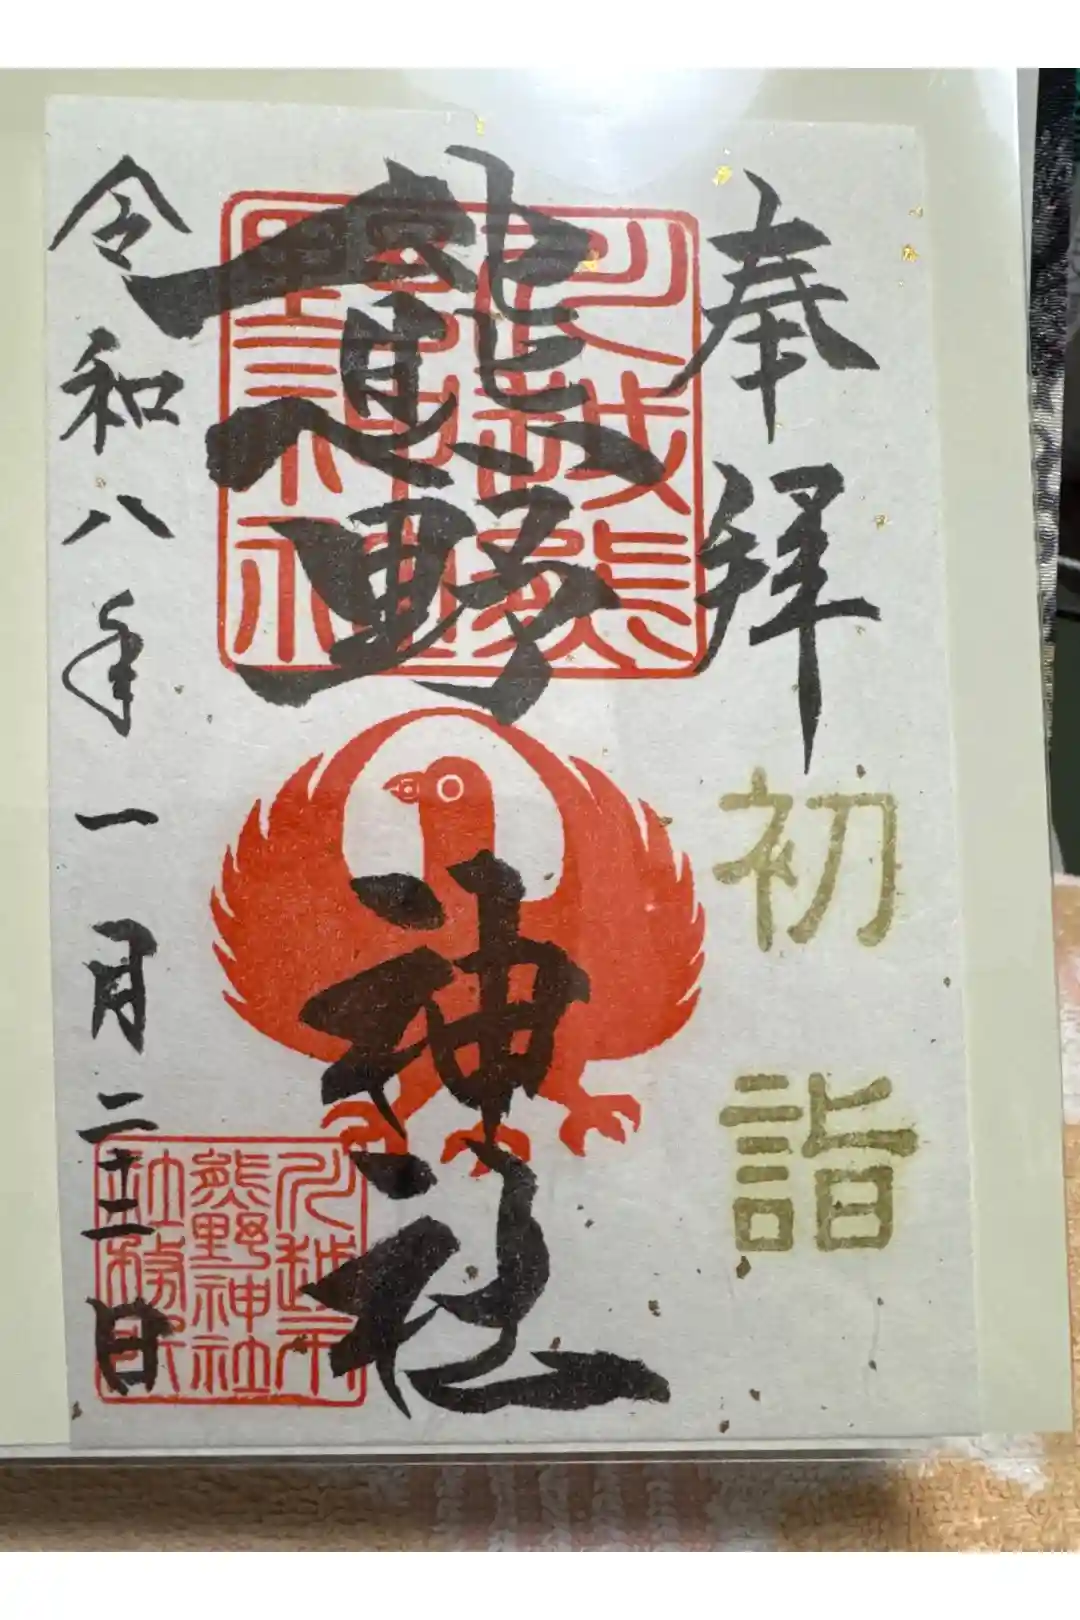 奉拝
初詣
川越熊
野神社
熊野神社
川越市
熊野神社
社務所
令和八年一月二十三日